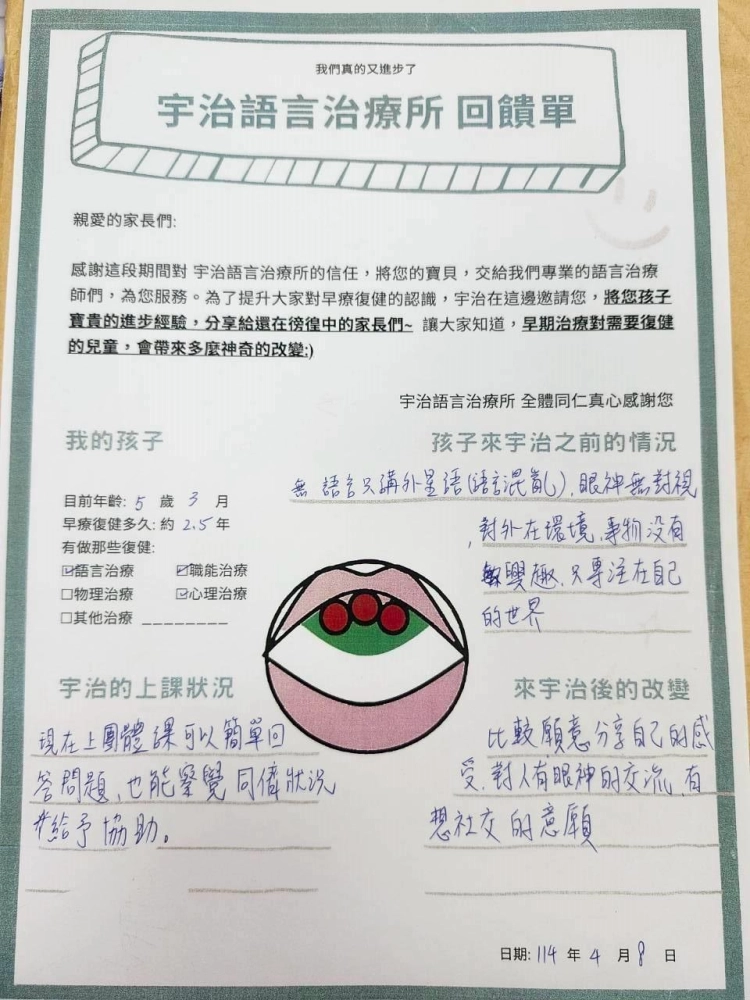 我們真的又進步了
宇治語言治療所 回饋單
親愛的家長們:
感謝這段期間對 宇治語言治療所的信任，將您的寶貝，交給我們專業的語言治療
師們，為您服務。為了提升大家對早療復健的認識，宇治在這邊邀請您，將您孩子
寶貴的進步經驗，分享給還在徬徨中的家長們~ 讓大家知道，早期治療對需要復健
的兒童，會帶來多麼神奇的改變:)
宇治語言治療所 全體同仁真心感謝您
我的孩子
目前年齡: 5 歲 3 月
早療復健多久: 約 2.5 年
有做那些復健:
☑語言治療 ☑職能治療
☐物理治療 ☑心理治療
☐其他治療 ________
孩子來宇治之前的情況
無 語言只講外星語(語言混亂)、眼神無對視
，對外在環境、事物沒有
興趣、只專注在自己
的世界
宇治的上課狀況
現在上團體課可以簡單回
答問題、也能察覺同儕狀況
給予協助。
來宇治後的改變
比較願意分享自己的感
受、對人有眼神的交流、有
想社交的意願
日期: 114 年 4 月 8 日